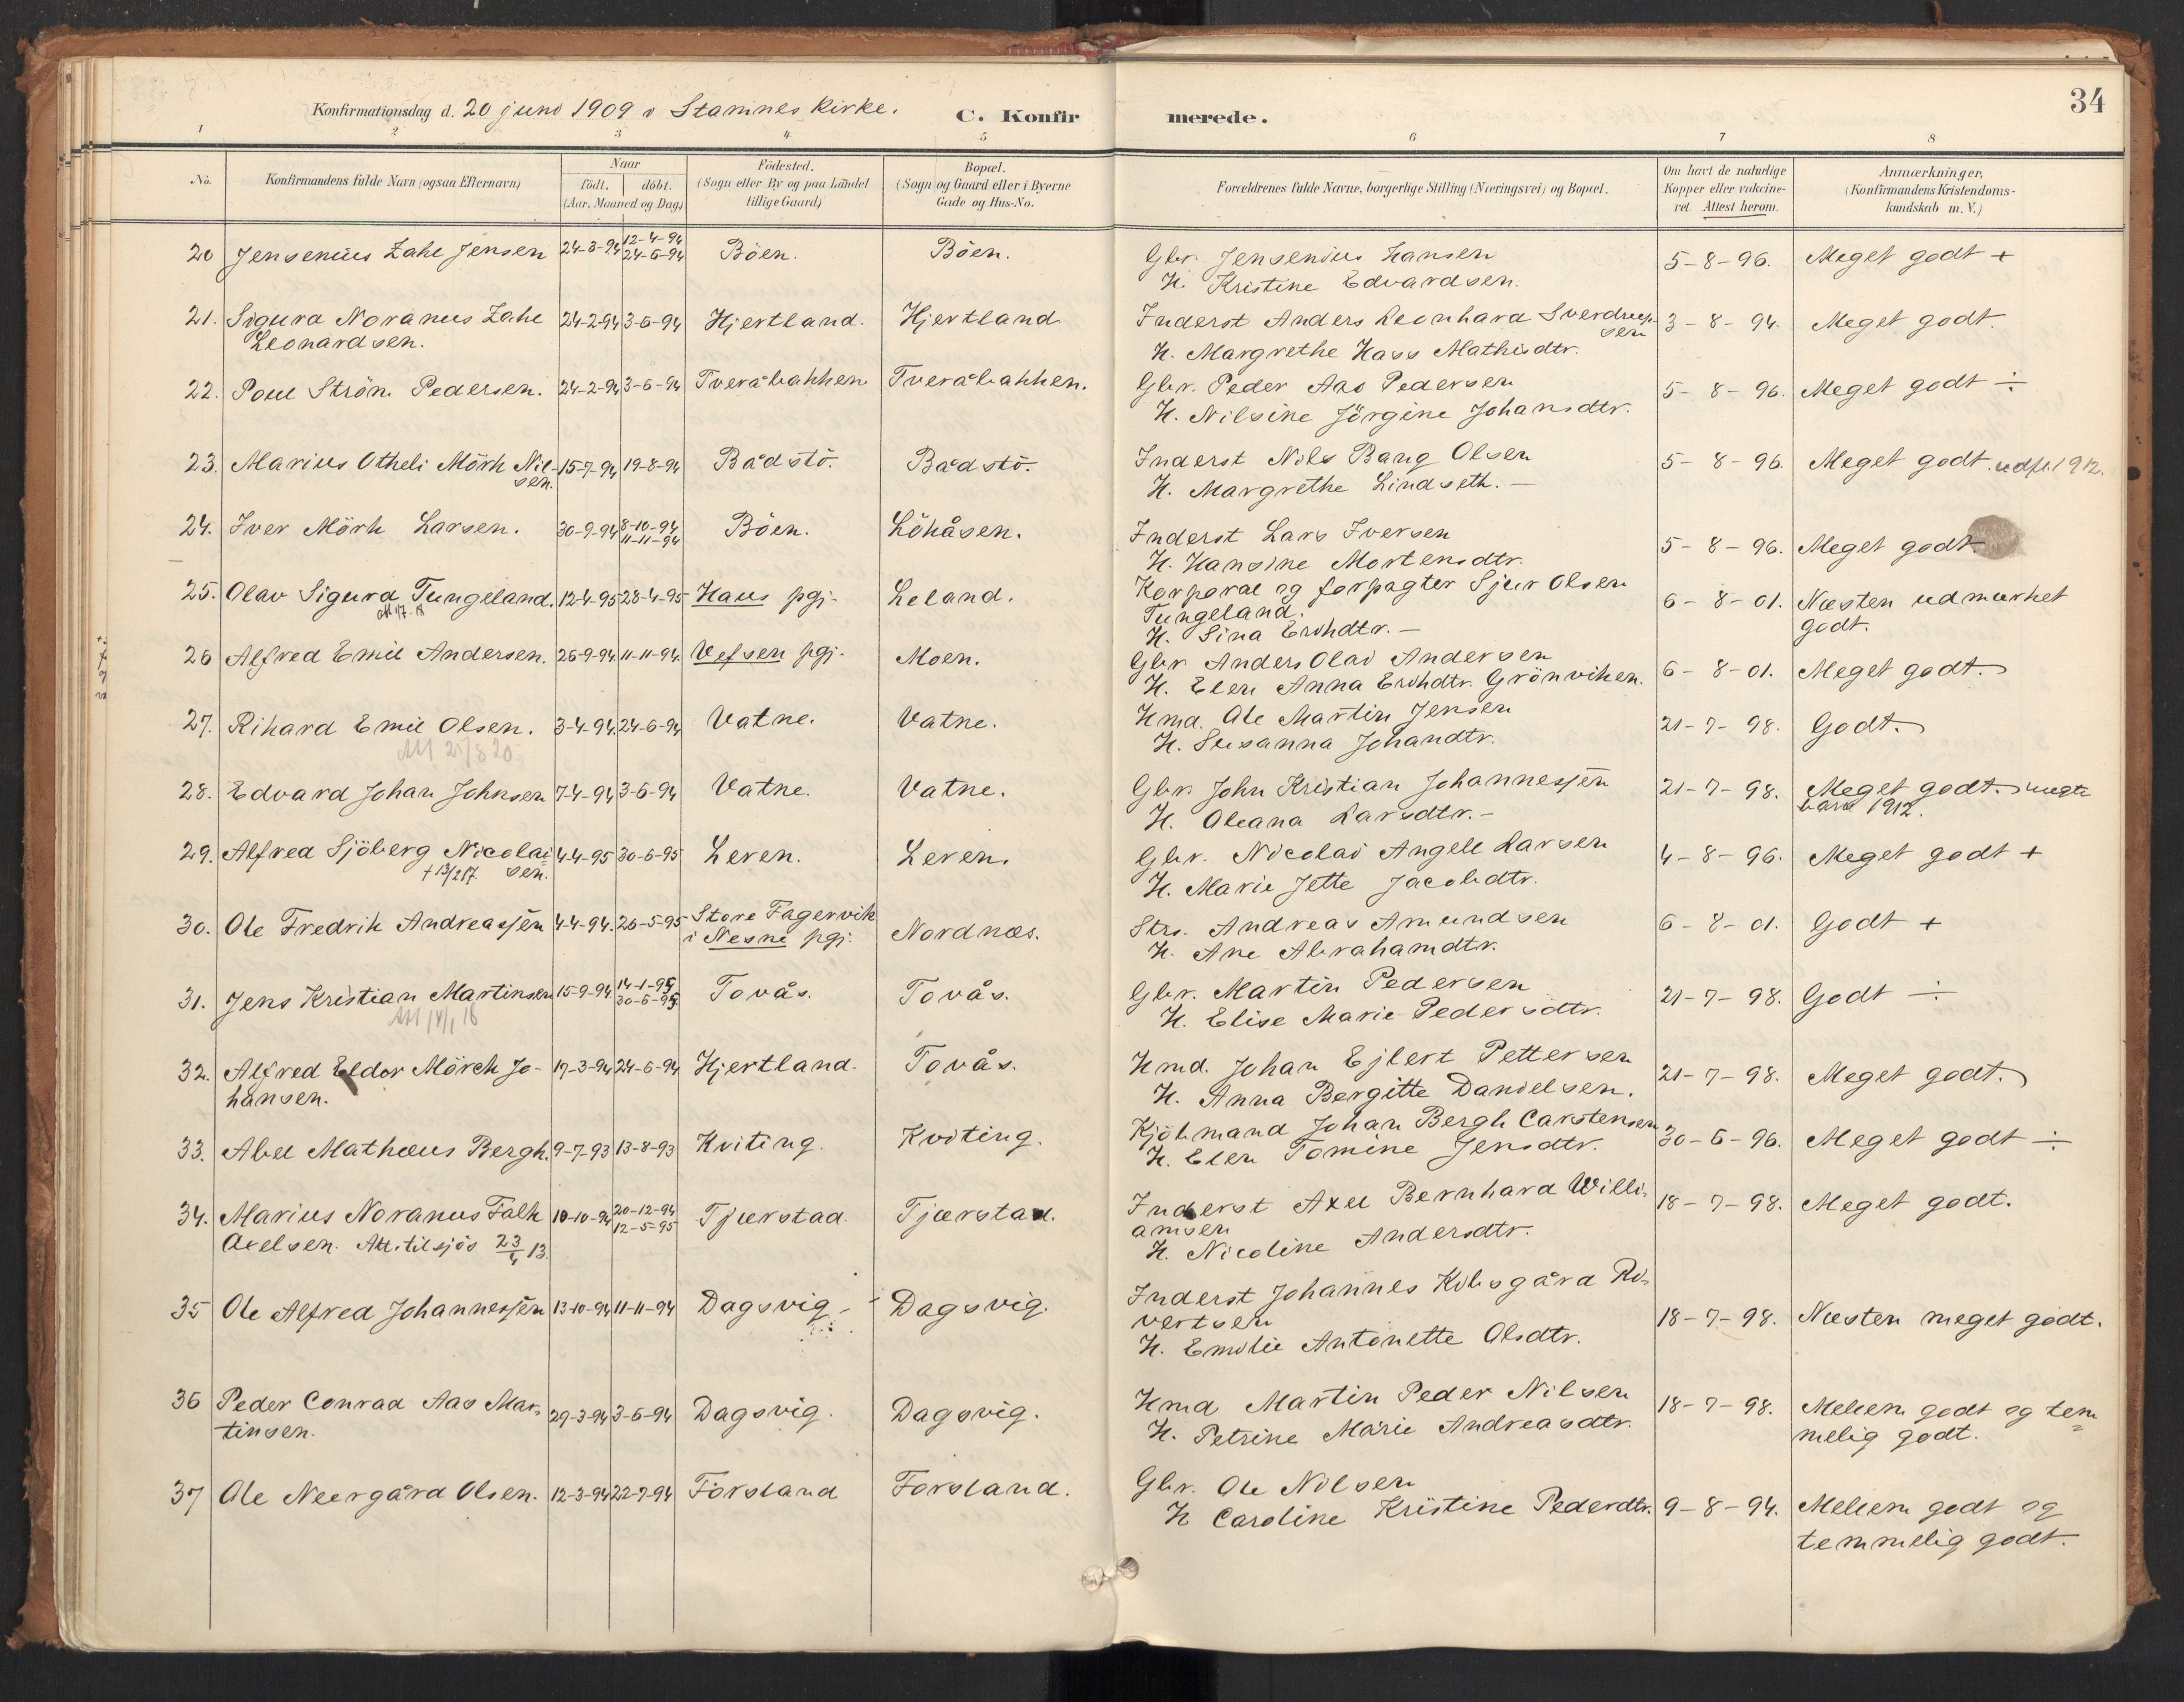 34
Konfirmationsdag d. 20 juni 1909 i Stamnes Kirke.
C. Konfirmerede.
1 2 3 4 5 6 7 8
No.
Konfirmandens fulde Navn (ogsaa Efternavn)
Naar
født. døbt.
(Aar, Maaned og Dag)
Födested.
(Sogn eller By og paa Landet
tillige Gaard)
Bopæl.
(Sogn og Gaard eller i Byerne
Gade og Hus-No.
Forældrenes fulde Navne, borgerlige Stilling (Næringsvei) og Bopæl.
Om havt de naturlige
Kopper eller vakcine-
ret. Attest herom.
Anmærkninger.
(Konfirmandens Kristendoms-
kundskab m. V.)
20 Jensenius Zahl Jensen 24-3-94 12-4-94 24-6-94 Böen. Böen. Gbr. Jensenius Hansen 5-8-96. Meget godt +
H. Kristine Edvardsen.
21. Sigurd Noranus Zahl 24-2-94 3-6-94 Hjertland. Hjertland Inderst Anders Leonhard Sverdrup- 3-8-94. Meget godt.
Leonardsen. sen
H. Margrethe Hass Mathisdtr.
22. Poul Ström Pedersen. 24-2-94 3-6-94 Tveråbakken Tveråbakken. Gbr. Peder Aas Pedersen 5-8-96. Meget godt ÷
H. Nilsine Jörgine Johansdtr.
23. Marius Otheli Mörk Nil- 15-7-94 19-8-94 Bådstö. Bådstö. Inderst Nils Bang Olsen 5-8-96. Meget godt. udfl. 1912.
sen.
H. Margrethe Lindseth. —
24. Iver Mörk Larsen. 30-9-94 8-10-94 11-11-94 Böen. Lökåsen. Inderst Lars Iversen 5-8-96. Meget godt
H. Hansine Mortensdtr.
25. Olav Sigurd Tungeland. 12-4-95 28-4-95 Haus pgj. Leland. Korporal og forpagter Sjur Olsen 6-8-01. Næsten udmærket
Tungeland. godt.
H. Sina Erikdtr. —
26 Alfred Emil Andersen. 26-9-94. 11-11-94. Vefsen pgj. Moen. Gbr. Anders Olai Andersen 6-8-01. Meget godt.
H. Elen Anna Erikdtr. Grönviken.
27. Rikard Emil Olsen. 3-4-94. 24-6-94 Vatne. Vatne. Hmd. Ole Martin Jensen 21-7-98. Godt.
Att 25/8 20
H. Susanna Johandtr.
28. Edvard Johan Johnsen 7-4-94 3-6-94 Vatne. Vatne. Gbr. John Kristian Johannessen 21-7-98. Meget godt. uegte
barn 1912.
H. Oleana Larsdtr. -
29. Alfred Sjöberg Nicolai 4-4-95 30-6-95 Leren. Leren. Gbr. Nicolai Angell Larsen 4-8-96. Meget godt +
sen.
H. Marie Jette Jacobdtr.
30. Ole Fredrik Andreassen 4-4-94. 26-5-95 Store Fagervik Nordnæs. Strs. Andreas Amundsen 6-8-01. Godt +
i Nesne pgj.
H. Ane Abrahamdtr.
31. Jens Kristian Martinsen 15-9-94. 14-1-95 30-6-95 Tovås. Tovås. Gbr. Martin Pedersen 21-7-98. Godt ÷
H. Elise Marie Pedersdtr.
32. Alfred Eldor Mörch Jo- 17-3-94 24-6-94 Hjertland. Tovås. Hmd. Johan Ejlert Pettersen 21-7-98. Meget godt.
hansen.
H. Anna Bergitte Danielsen.
33. Abel Mathæus Bergh. 9-7-93 13-8-93 Kviting. Kviting. Kjöbmand Johan Bergh Carstensen 30-6-96. Meget godt ÷
H. Elen Tomine Jensdtr.
34. Marius Noranus Falk 10-10-94 20-12-94 12-5-95 Tjærstad. Tjærstad. Inderst Axel Bernhard Willi- 18-7-98. Meget godt.
Axelsen. Att. til sjös 23/4 13. amsen
H. Nicoline Andersdtr.
35 Ole Alfred Johannessen 13-10-94 11-11-94 Dagsvig - Dagsvig. Inderst Johannes Kibsgård Ri- 18-7-98. Næsten meget godt.
vertsen
H. Emilie Antonette Olsdtr.
36 Peder Conrad Aas Mar- 29-3-94 3-6-94 Dagsvig. Dagsvig. Hmd Martin Peder Nilsen 18-7-98. Mellem godt og tem
tinsen. melig godt.
H. Petrine Marie Andreasdtr.
37 Ole Neergård Olsen. 12-3-94 22-7-94 Forsland Forsland. Gbr. Ole Nilsen 9-8-94. Mellem godt og
H Caroline Kristine Pederdtr. temmelig godt.